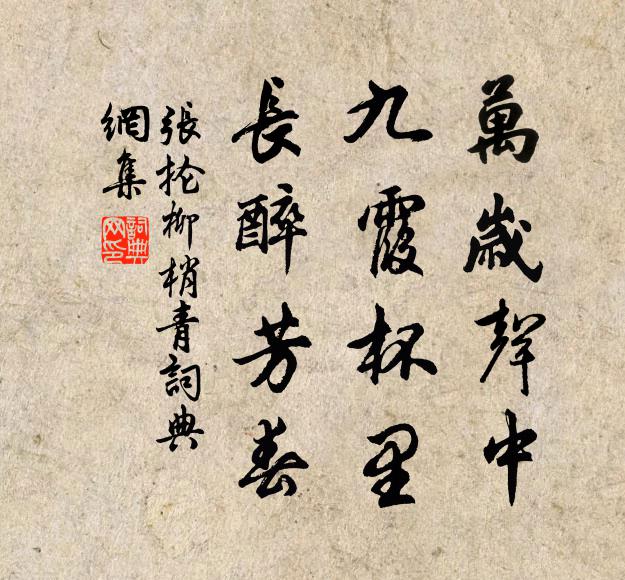 萬歲聲中
九霞杯里
長醉芳春
張掄柳梢青詞典
網集
詞典
网印